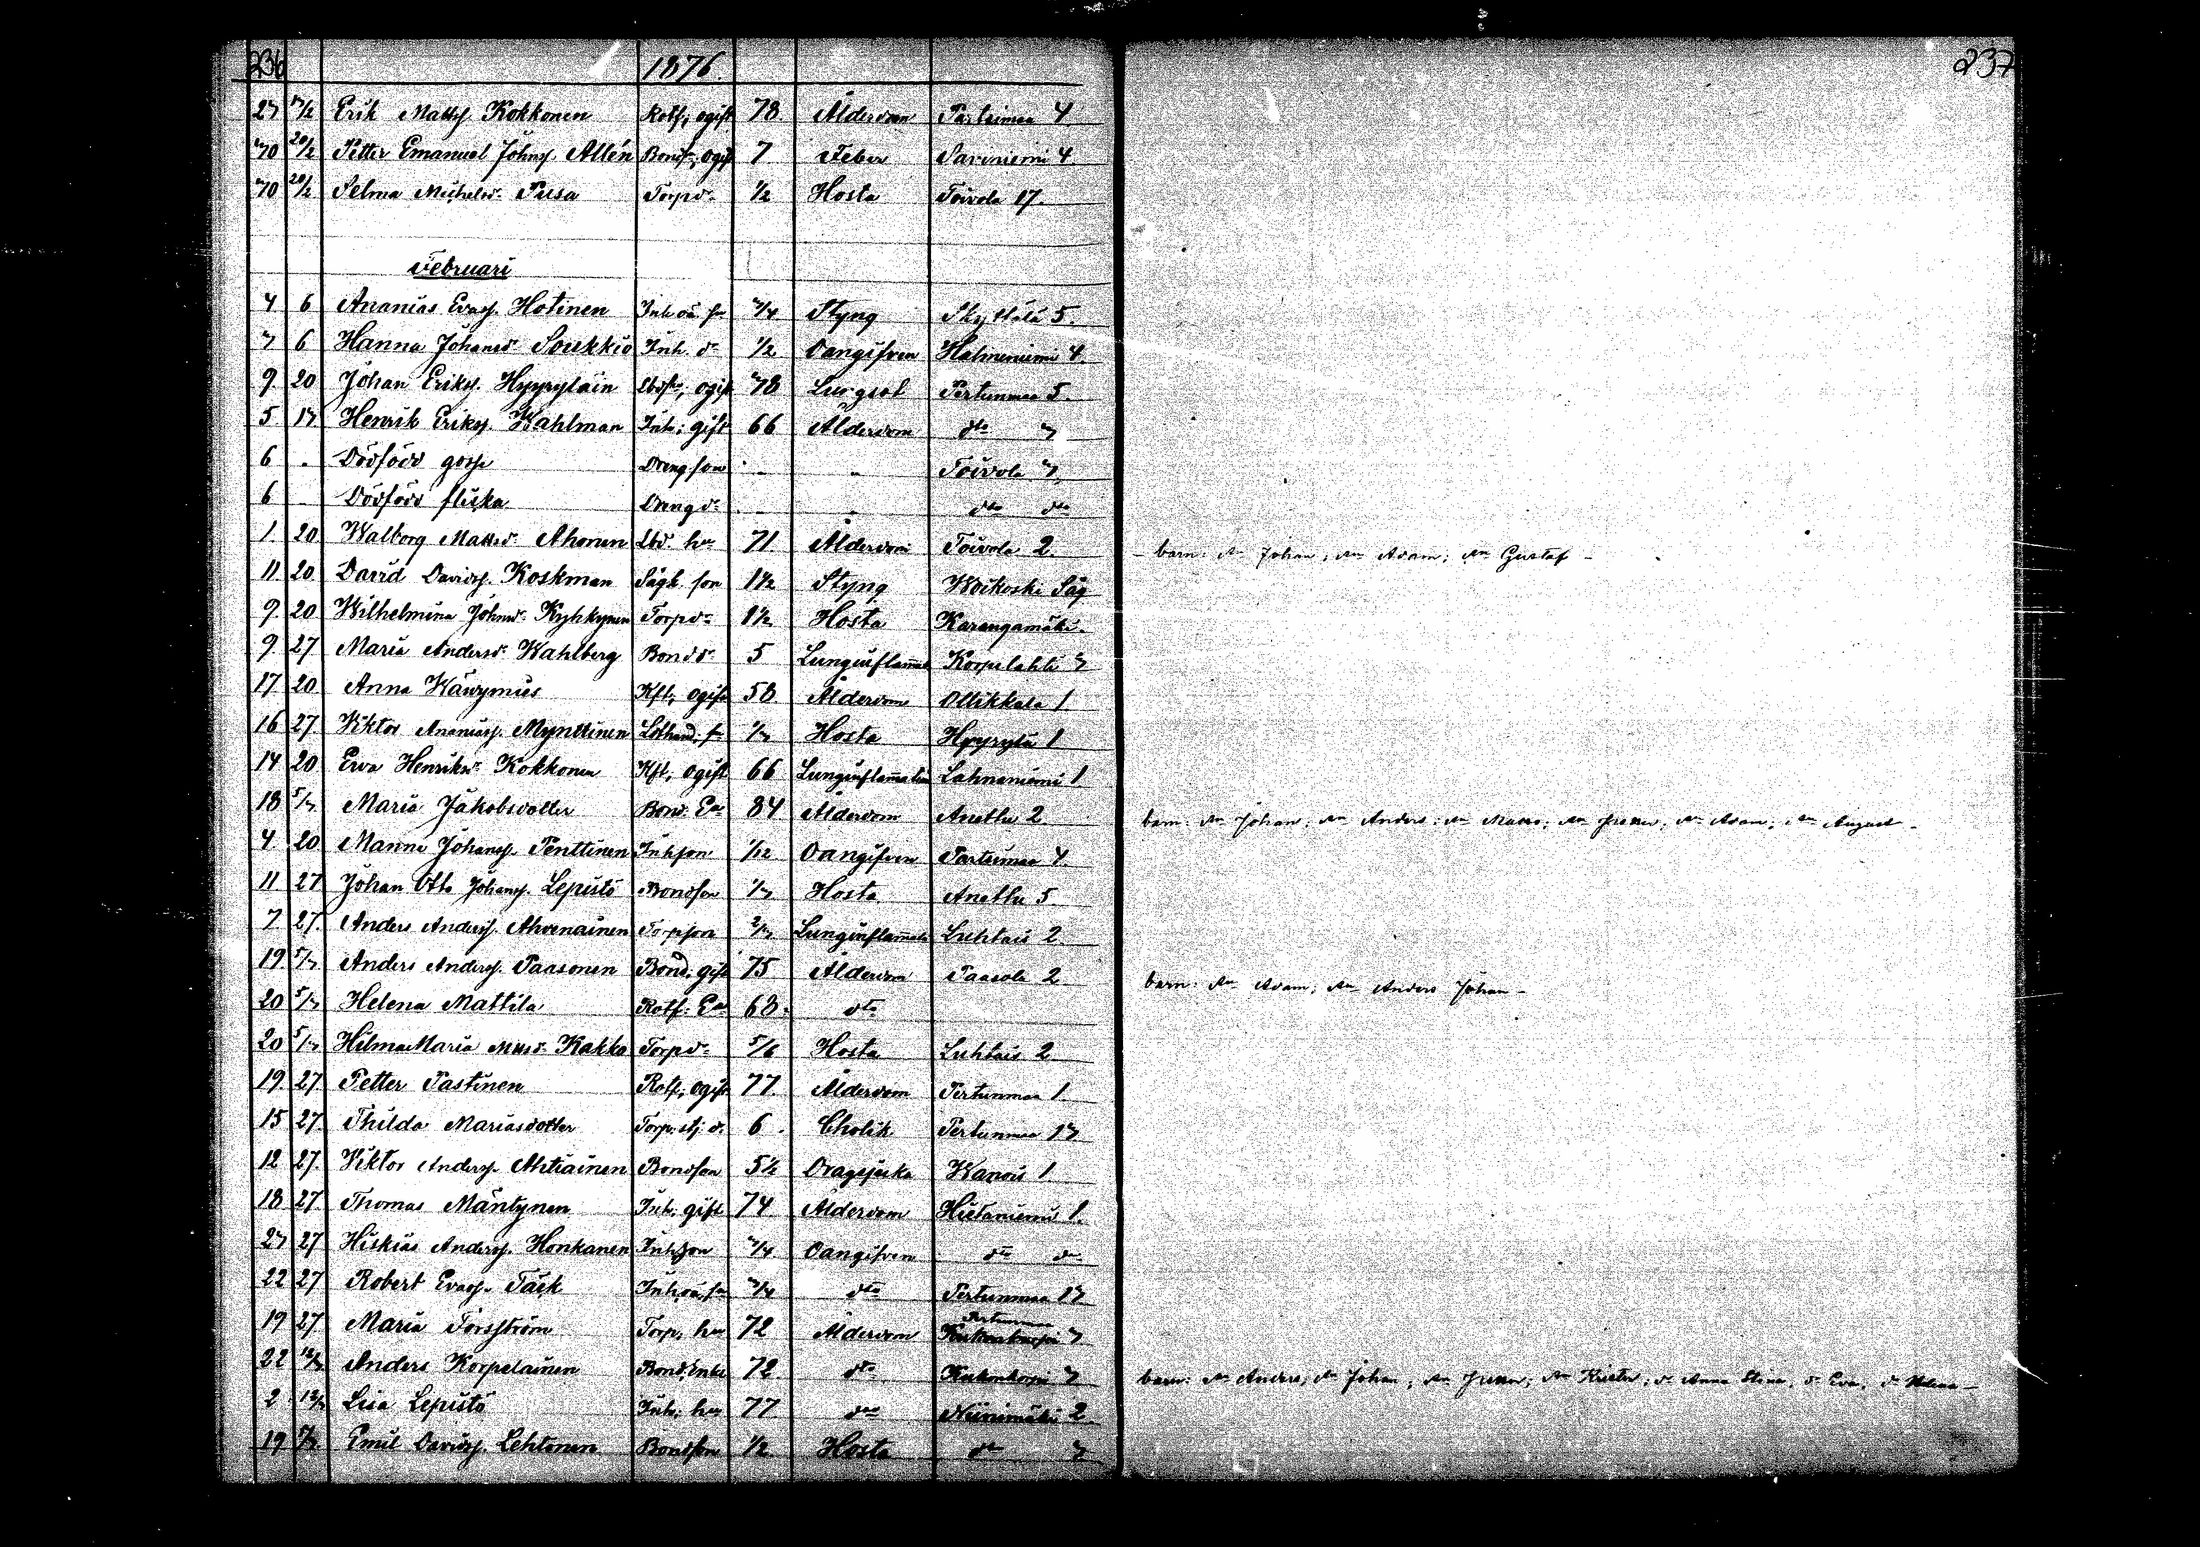 236 1876. 237
27 17/2 Erik Matts. Kokkonen Rotf; ogift 78 Ålderdom Partsimaa 4.
20/2 Petter Emanuel Johns. Allén Bonds; ogift 7 Feber Saviniemi 4
20/2 Selma Michelsd. Pusa Torpd. 1/2 Hosta Toivola 17.
Februari
4 6 Ananias Evas. Hotinen Inh oä. sn 3/4 Styng Skyttälä 5.
7 6 Hanna Johansd. Soukkio Inh. d. 1/2 Oangifven Halmeniemi 4.
9 20 Johan Eriks. Hyyryläin ogift 78 Lungsot Pertunmaa 5.
5 17 Henrik Eriks. Wahlman Inh; gift 66 Ålderdom dto 7
6 . Dödfödd gosse Dreng son - „ Toivola 7
6 - Dödfödd flicka Dreng d. - „ dto dto
1 20 Walborg Mattsd. Ahonen Lbd. hu 71. Ålderdom Toivola 2. - barn: Johan; Adam; Gustaf -
11 20 David Davids. Koskman Sågk. son 1 1/2 Styng Woikoski Såg
9. 20 Wilhelmina Johansd. Kyhkynen Torpd. 1 1/2 Hosta Karangamäki.
9 27 Maria Andersd. Wahlberg Bondd. 5 Lunginflamat Korpilahti 7
17 20 Anna Wäärymies Kft; ogift 58 Ålderdom Ollikkala 1
16 27. Viktor Ananias. Mynttinen 1/7 Hosta Hyyrylä 1
14 20 Eva Henriksd. Kokkonen Kft; ogift 66 Lunginflamation Lahnaniemi 1
18 5/7 Maria Jakobsdotter Bond. Ea 84 Ålderdom Anettu 2 barn: Johan; Anders; Adam; August -
4 20 Manne Johans. Penttinen Inhson 1/12 Oangifven Partsimaa 4.
11 27 Johan Otto Johans. Lepistö Bondson 1/7 Hosta Anettu 5.
7 27. Anders Anders. Ahvenainen Torpson 2/7 Lunginflamat Luhtais 2
19. 5/7 Anders Anders. Paasonen Bond; gift 75 Ålderdom Paasola 2. barn: Adam; Anders Johan -
20 5/7 Helena Mattila Rotf: Ea 68. dto
20 5/7 Hilma Maria Kakko Torpd. 5/6 Hosta Luhtais 2
19. 27 Petter Pastinen Rotf; ogift 77. Ålderdom Pertunmaa 1.
15 27. Thilda Mariasdotter Torp: stj. d. 6. Cholik Pertunmaa 17
12 27. Viktor Anders. Ahtiainen Bondson 5 1/2 Dragsjuka Wanois 1
18. 27 Thomas Mäntynen Inh; gift 74 Ålderdom Hietaniemi 1.
27 27 Hiskias Anders. Honkanen Inhson 3/4 Oangifven dto do
22 27 Robert Evas. Täck Inh.oä.sn 3/4 dto Pertunmaa 17
19 27 Maria Forsström Torp; hu 72 Ålderdom Pertunmaa Kukonkorpi 7
22 12/3 Anders Korpelainen Bond; Enkl 72 dto Kukonkorpi 7 barn: Anders; Johan; Krister; d. Anna Stina; d. Eva; d. Helena -
2 12/3 Lisa Lepistö Inh; hu 77. dto Niinimäki 2
19 Emil Davids. Lehtonen Bondson 1/2 Hosta do 7